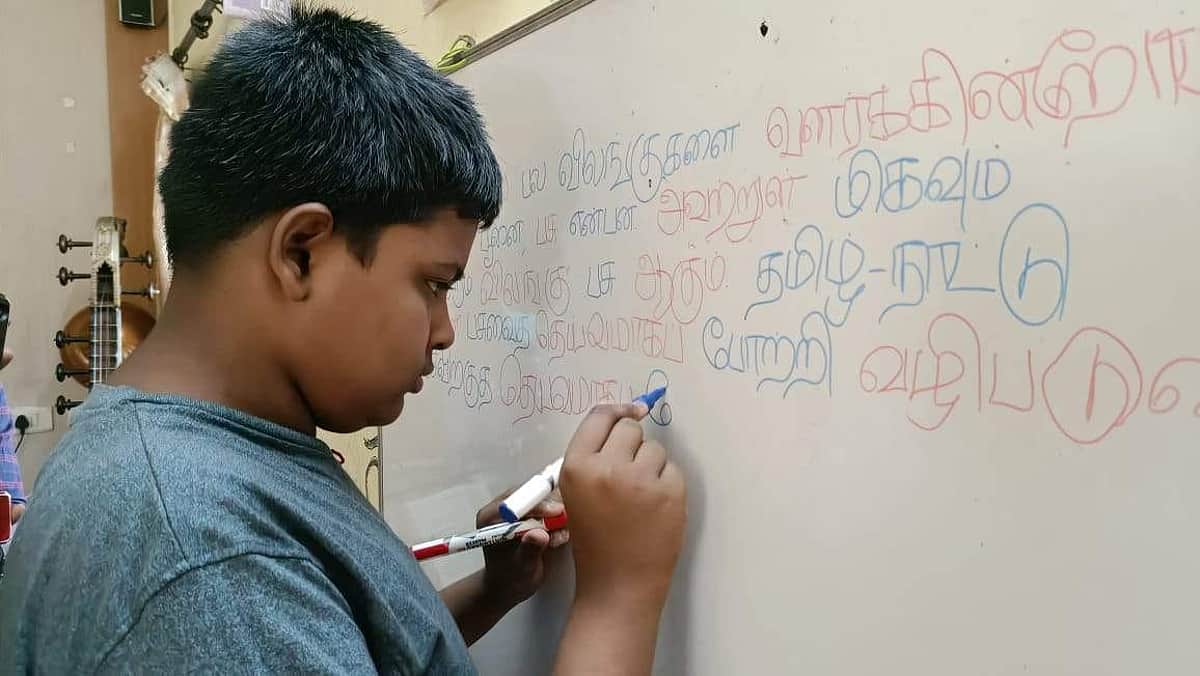 பல விலங்குகளை வளர்க்கின்றோம்
பூனை, பசு என்பன. அவற்றுள் மிகவும்
விலங்கு பசு ஆகும். தமிழ்-நாட்டு
பசுவை தெய்வமாகப் போற்றி வழிபடு
தெய்வமாக